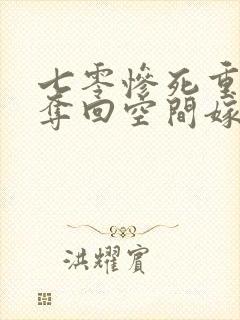 七零慘死重
奪回空間嫁
洪耀賓